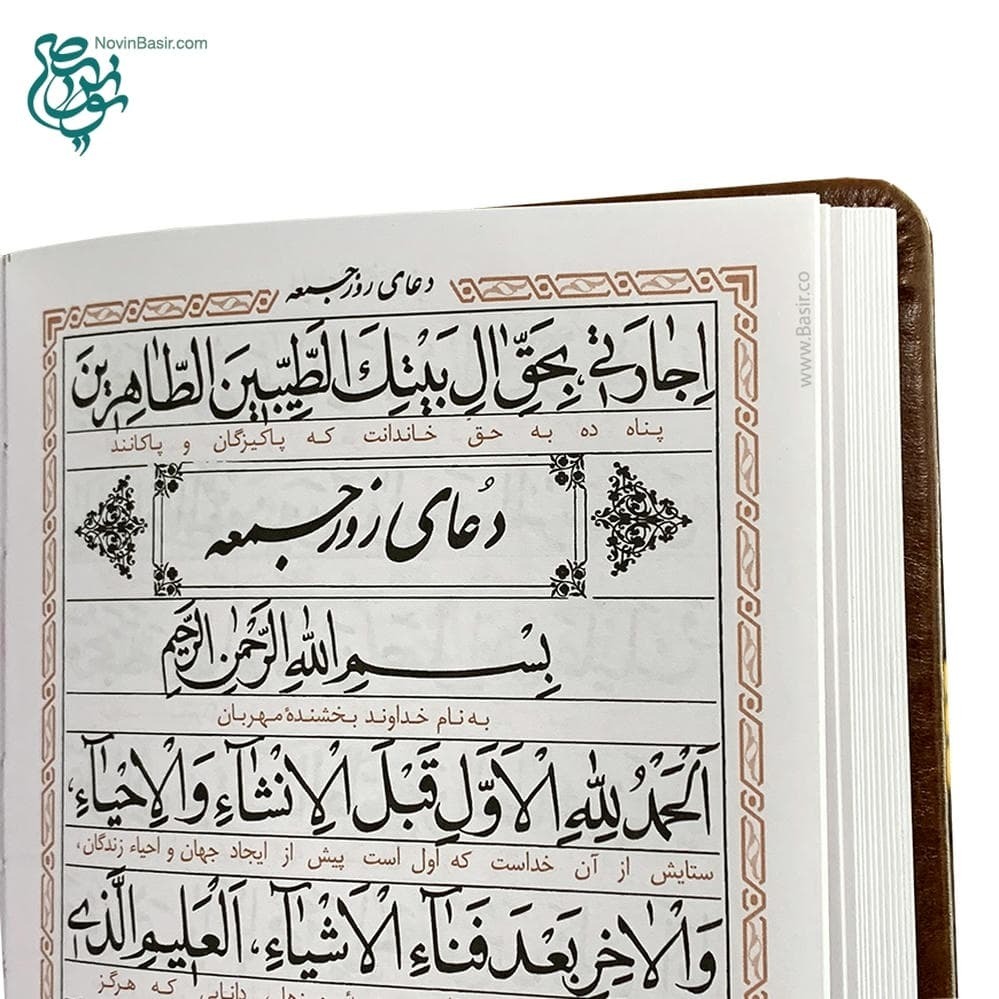 NovinBasir.com
www.Basir.co
دعای روز جمعه
اِجٰارَتی، بِحَقِّ اٰلِ بَیْتِكَ الطَّیِّبینَ الطّاهِرینَ
پناه ده به حق خاندانت که پاکیزگان و پاکانند
دُعای روز جمعه
بِسْمِ اللهِ الرَّحْمٰنِ الرَّحیمِ
به نام خداوند بخشندهٔ مهربان
اَلْحَمْدُ لِلّٰهِ الْاَوَّلِ قَبْلَ الْاِنْشٰآءِ وَالْاِحْیٰآءِ،
ستایش از آن خداست که اول است پیش از ایجاد جهان و احیاء زندگان،
وَالْاٰخِرِ بَعْدَ فَنٰآءِ الْاَشْیٰآءِ، اَلْعَلیمِ الَّذی
دانایی که هرگز